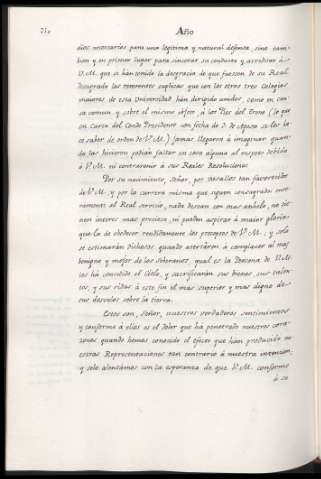 Año
dios necessarios para una legitima y natural defensa, sino tam-
bien y en primer lugar para sincerar su conducta y acreditar á
V. M. que si han tenido la desgracia de que fuessen de su Real
desagrado las reverentes suplicas que con los otros tres colegios
maiores de esta Universidad han dirigido unidos, como en cau-
sa comun y sobre el mismo efecto, á los Pies del Trono (lo que
en Carta del Conde Presidente con fecha de de Agosto se les hi-
zo saber de orden de V. M.) jamas llegaron á imaginar quan-
do las hicieron podian faltar en cosa alguna al respeto debido
á V. M. ni contravenir á sus Reales Resoluciones.
Por su nacimiento, señor, por vasallos tan favorecidos
de V. M. y por la carrera misma que siguen consagrados ente-
ramente al Real servicio, nada desean con mas anhelo, no tie-
nen interes mas precioso, ni pueden aspirar á maior gloria
que la de obedecer rendidamente los preceptos de V. M. y solo
se estimarán dichosos quando acertáren á complacer al mas
benigno y mejor de los soberanos, qual es la Persona de V. M.
les há concedido el Cielo, y sacrificarán sus bienes sus talen-
tos, y sus vidas á este fin el mas superior y mas digno de
sus desvelos sobre la tierra.
Estos son, Señor, nuestros verdaderos sentimientos
y conforme á ellos es el dolor que há penetrado nuestros cora-
zones quando hemos conocido el efecto que han producido nu-
estras Representaciones tan contrario á nuestra intencion,
y solo alentamos con la esperanza de que V. M. conforme
á su